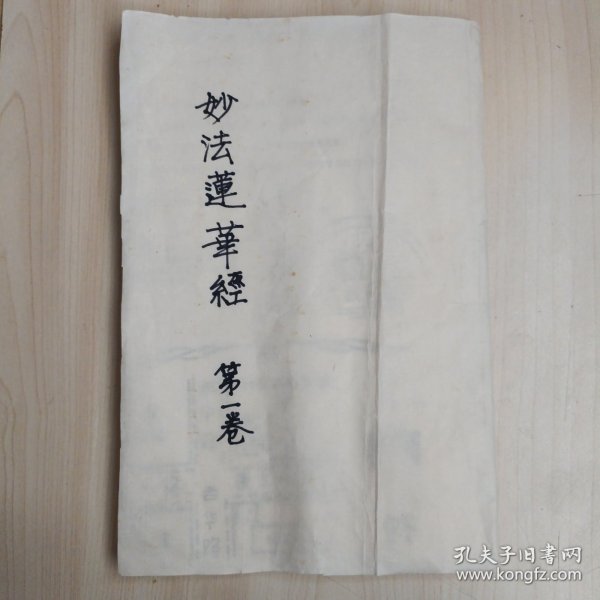 妙法蓮華經 第一卷
孔夫子旧書网
www.kongfz.com